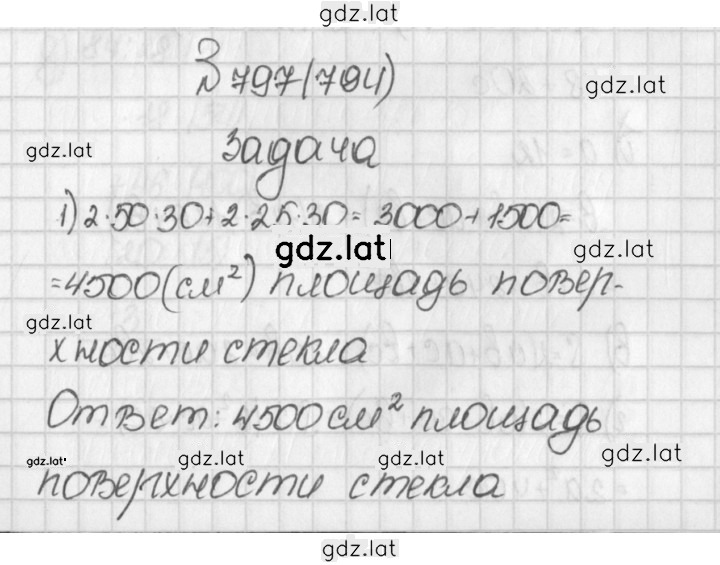 gdz.lat
№ 797(794)
gdz.lat
gdz.lat
Задача
1) 2·50·30+2·25·30= 3000+1500=
gdz.lat
gdz.lat
=4500(см²) площадь повер-
gdz.lat
хности стекла
gdz.lat
Ответ: 4500 см² площадь
gdz.lat
gdz.lat
gdz.lat
gdz.lat
поверхности стекла
gdz.lat